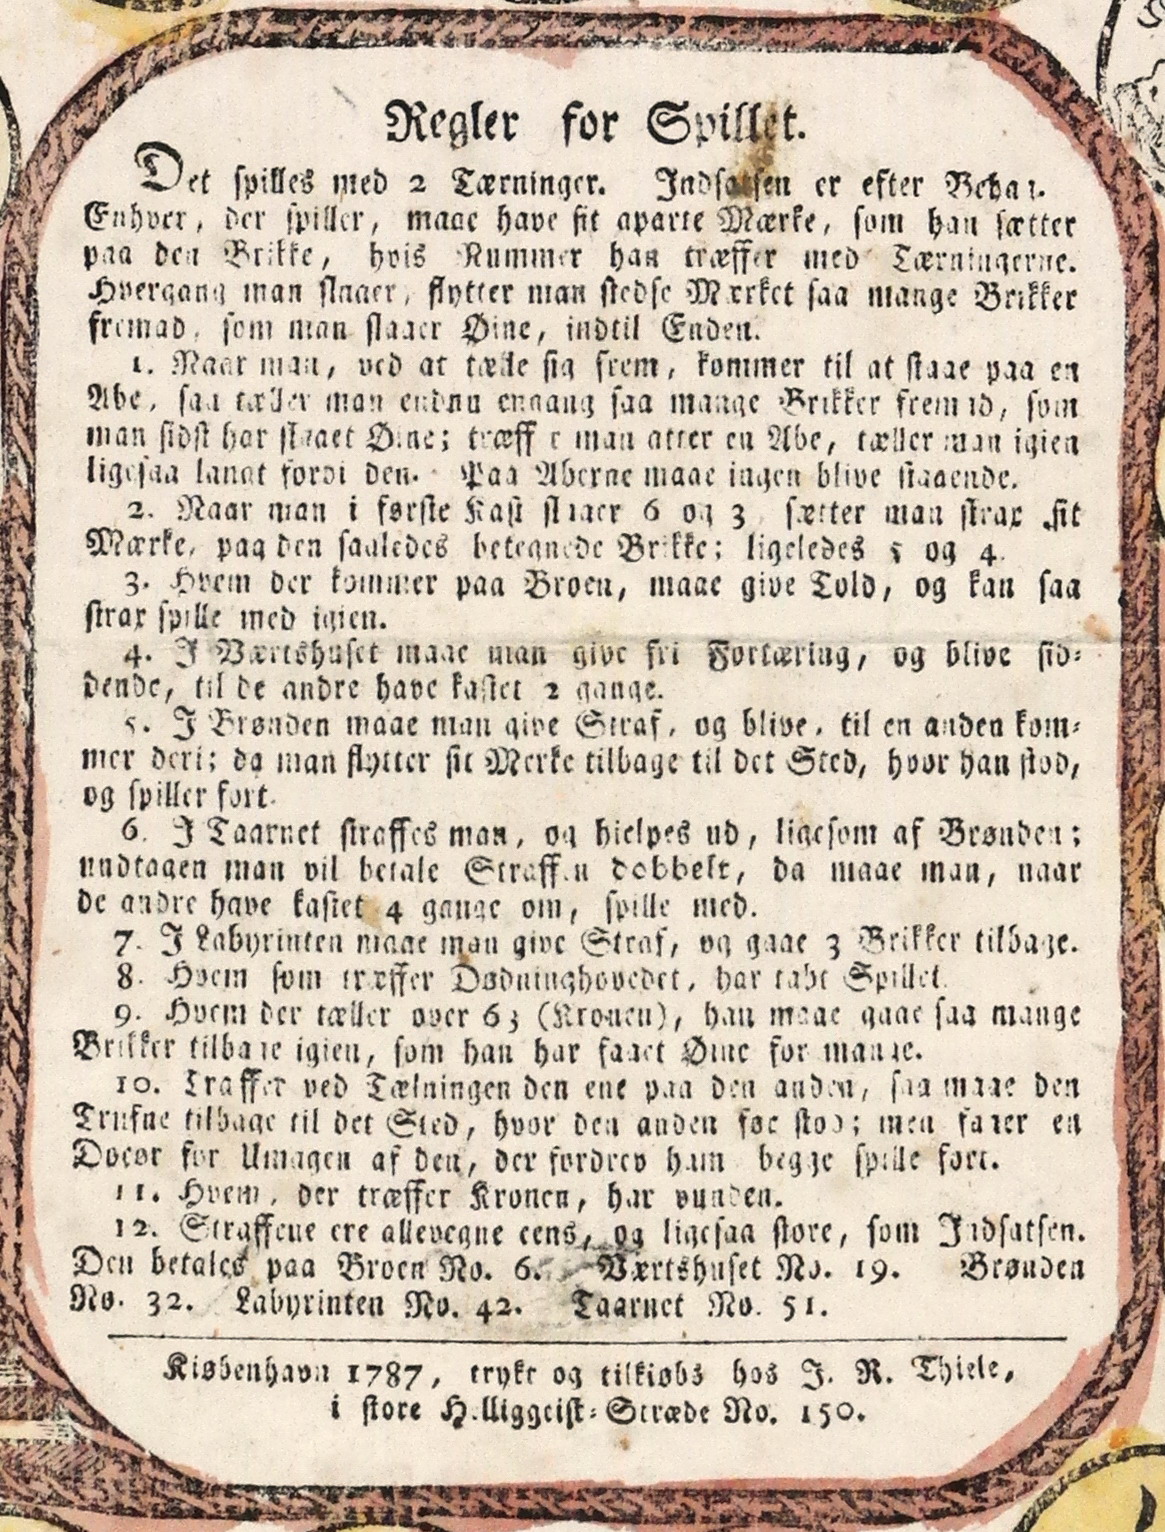 Regler for Spillet.
Det spilles med 2 Tærninger. Indsatsen er efter Behag.
Enhver, der spiller, maae have sit aparte Mærke, som han sætter
paa den Brikke, hvis Nummer han træffer med Tærningerne.
Hvergang man slaaer, flytter man stedse Mærket saa mange Brikker
fremad, som man slaaer Øine, indtil Enden.
1. Naar man, ved at tælle sig frem, kommer til at staae paa en
Abe, saa tæller man endnu engang saa mange Brikker fremad, som
man sidst har slaaet Øine; træffer man atter en Abe, tæller man igien
ligesaa langt forbi den. Paa Aberne maae ingen blive staaende.
2. Naar man i første Kast slaaer 6 og 3, sætter man strax sit
Mærke, paa den saaledes betegnede Brikke; ligeledes 5 og 4.
3. Hvem der kommer paa Broen, maae give Told, og kan saa
strax spille med igien.
4. I Værtshuset maae man give fri Fortæring, og blive sid-
dende, til de andre have kastet 2 gange.
5. I Brønden maae man give Straf, og blive, til en anden kom-
mer deri; da man flytter sit Merke tilbage til det Sted, hvor han stod,
og spiller fort.
6. I Taarnet straffes man, og hielpes ud, ligesom af Brønden;
undtagen man vil betale Straffen dobbelt, da maae man, naar
de andre have kastet 4 gange om, spille med.
7. I Labyrinten maae man give Straf, og gaae 3 Brikker tilbage.
8. Hvem som træffer Dødninghovedet, har tabt Spillet.
9. Hvem der tæller over 63 (Kronen), han maae gaae saa mange
Brikker tilbage igien, som han har faaet Øine for mange.
10. Træffer ved Tælningen den ene paa den anden, saa maae den
Trufne tilbage til det Sted, hvor den anden før stod; men faaer en
Doeør for Umagen af den, der fordrev ham begge spille fort.
11. Hvem, der træffer Kronen, har vunden.
12. Straffene ere allevegne eens, og ligesaa store, som Indsatsen.
Den betales paa Broen No. 6. Værtshuset No. 19. Brønden
No. 32. Labyrinten No. 42. Taarnet No. 51.
Kiøbenhavn 1787, trykt og tilkiøbs hos J. R. Thiele,
i store Helliggeist-Stræde No. 150.